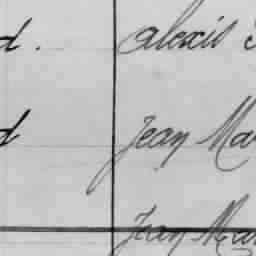 d. alexis
d Jean Ma
Jean Mar